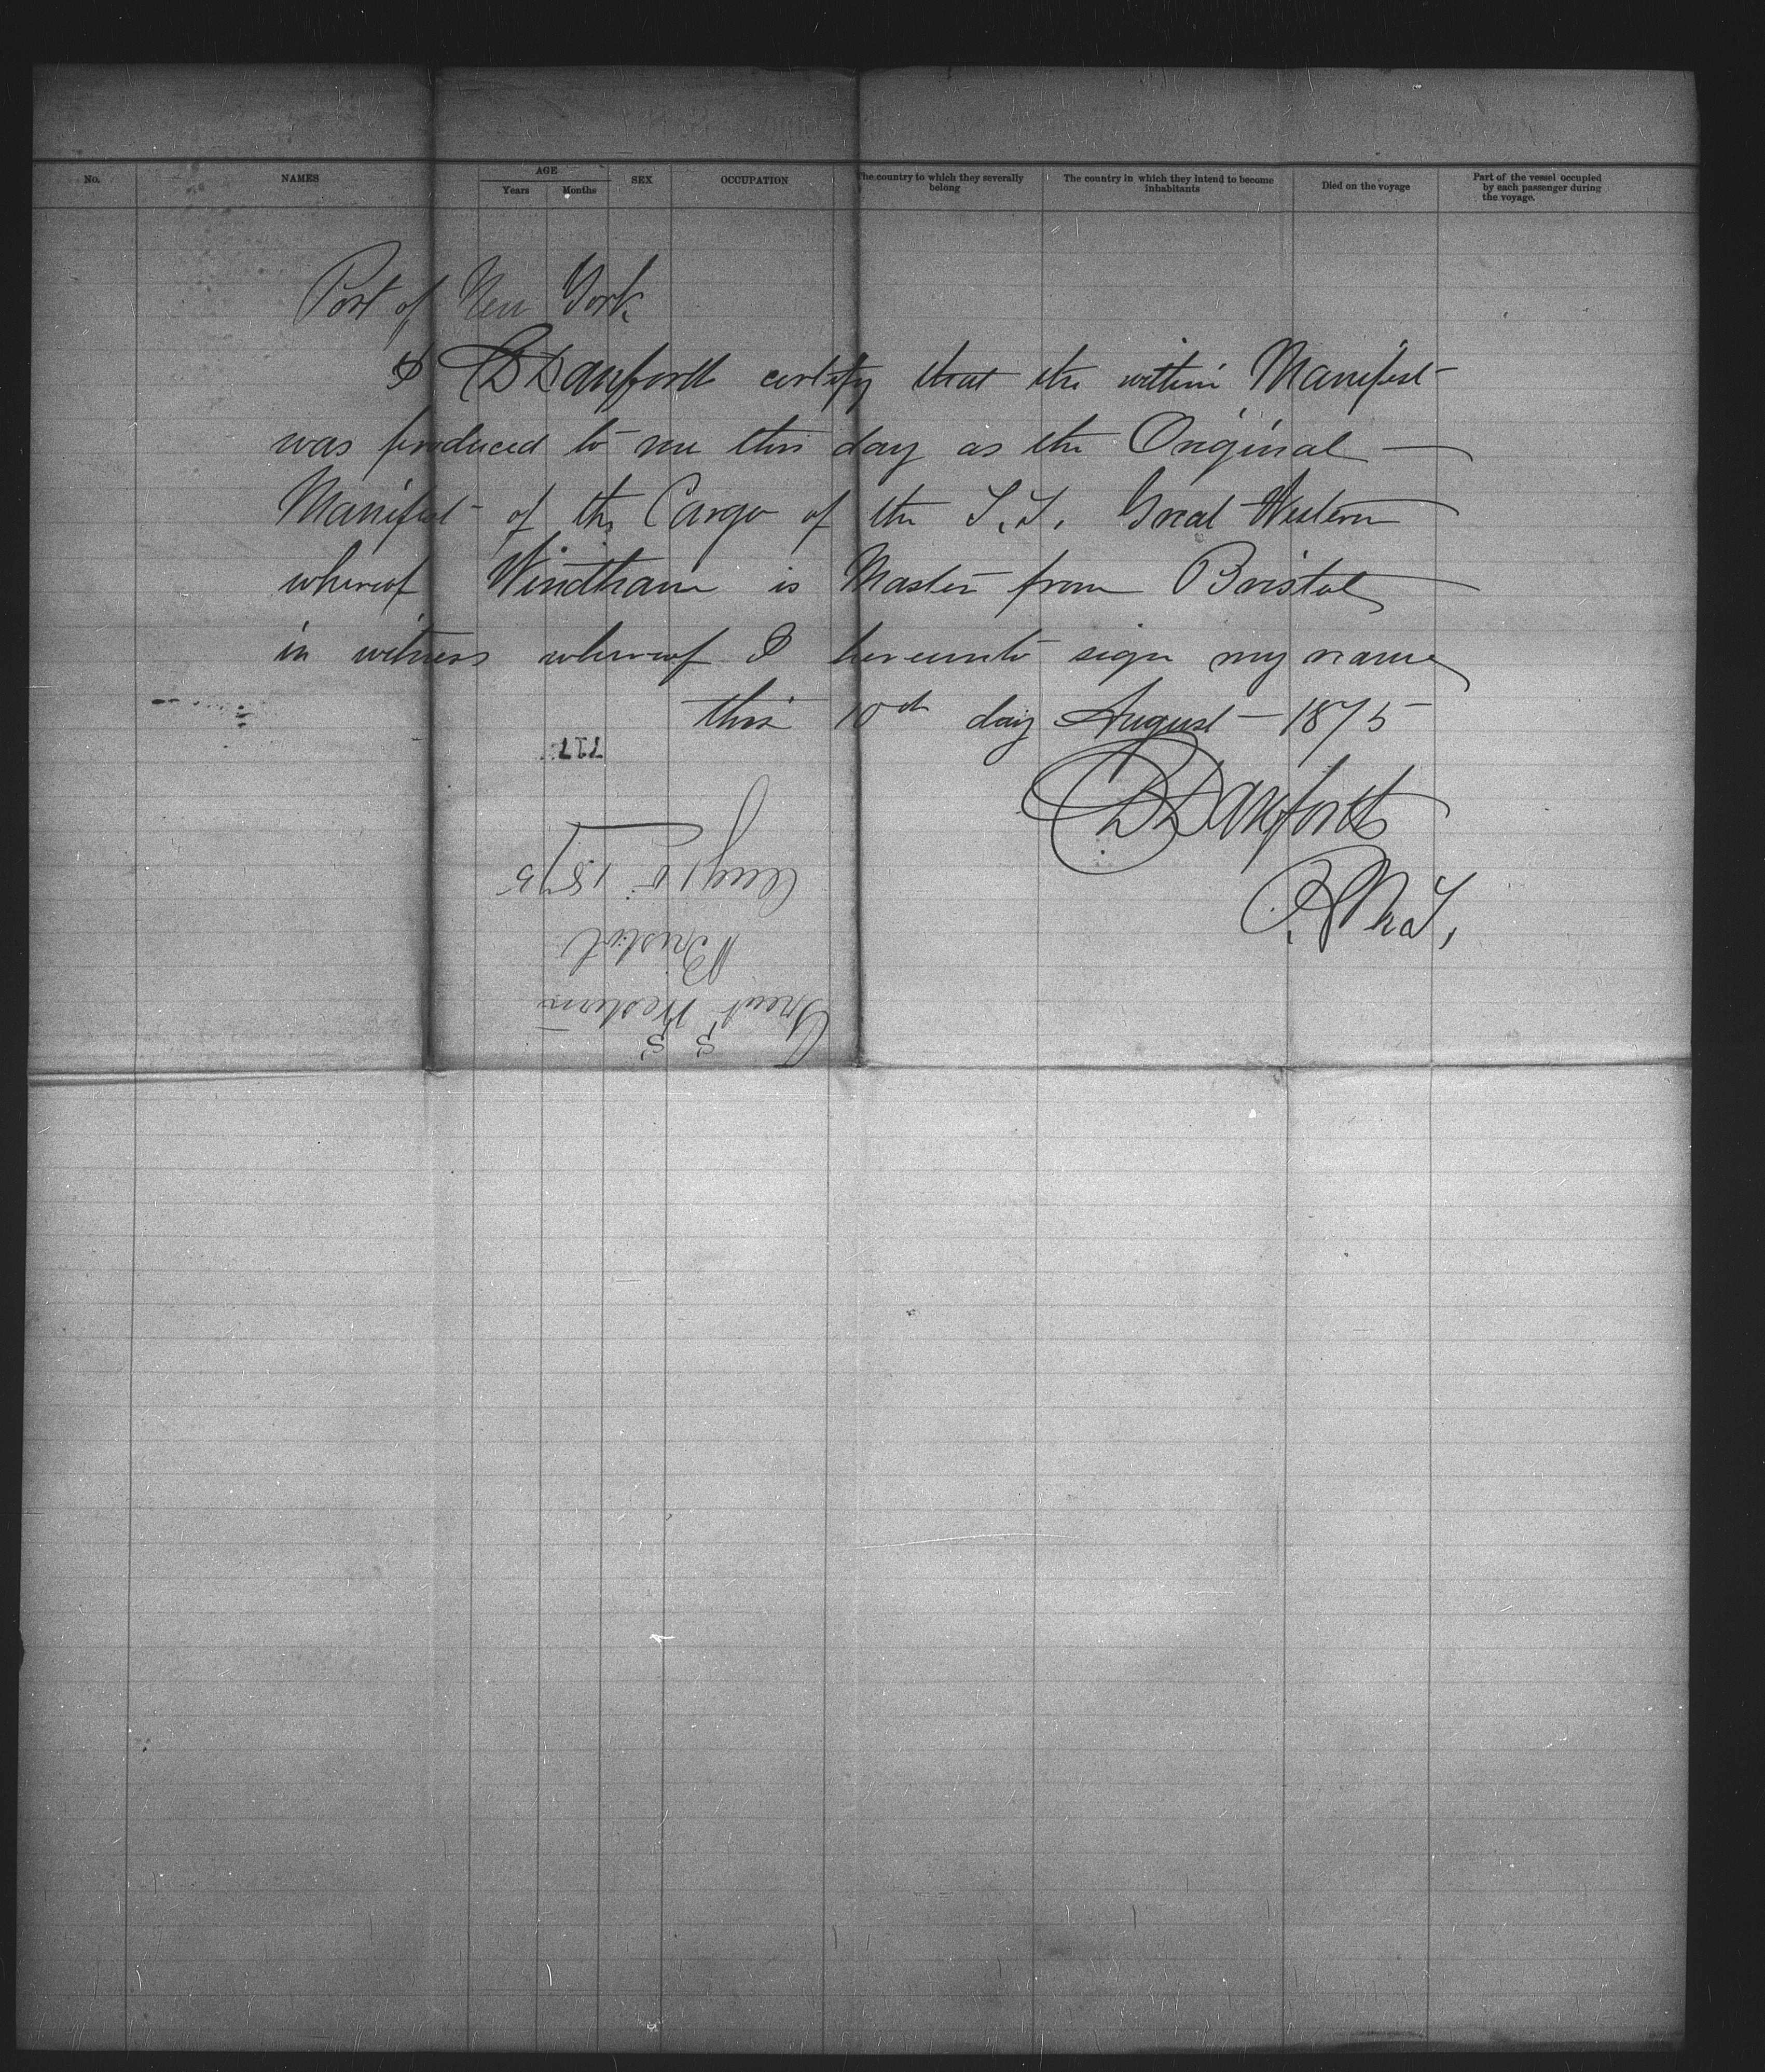 No.
NAMES
AGE
Years
Months
SEX
OCCUPATION
The country to which they severally
belong
The country in which they intend to become
inhabitants
Died on the voyage
Part of the vessel occupied
by each passenger during
the voyage.
Port of New York
I D Danforth certify that the within Manifest
was produced to me this day as the Original
Manifest of the Cargo of the S.S. Great Western
whereof Windham is Master from Bristol
in witness whereof I hereunto sign my name
this 10th day August 1875
D Danforth
717
S S
Great Western
Bristol
Aug 10 1875